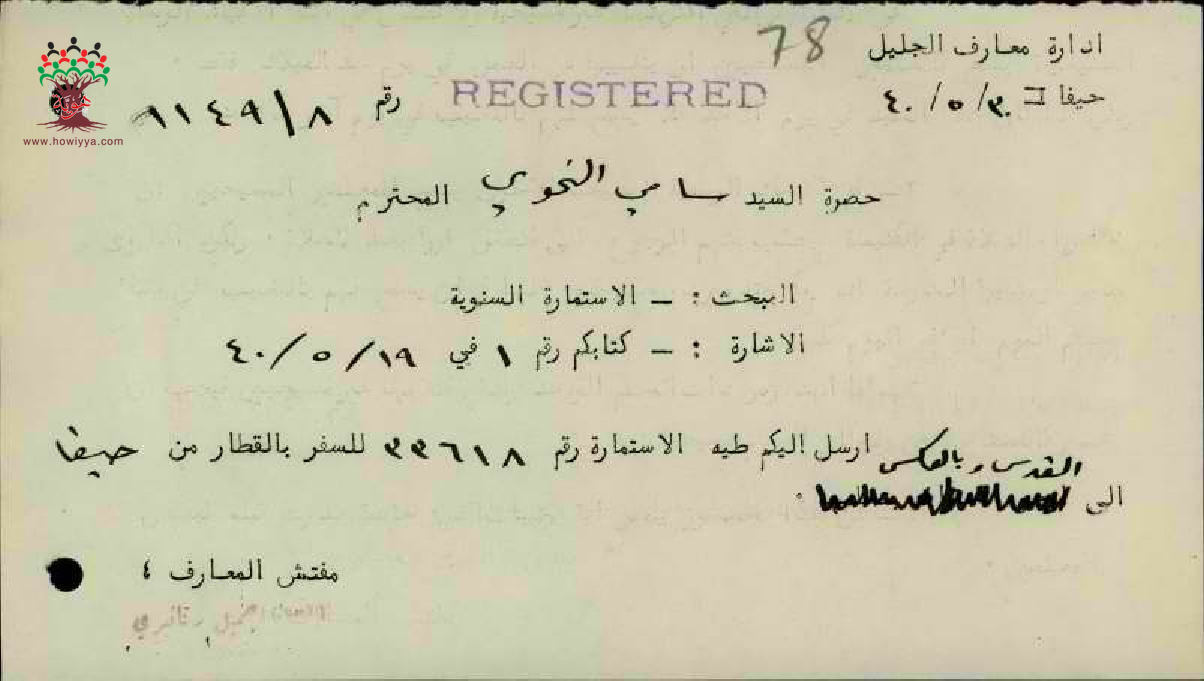 78
ادارة معارف الجليل
REGISTERED
حيفا ٣٠/٥/٤٠
رقم ٩١٤٩/٨
www.howiyya.com
حضرة السيد سامي النحوي المحترم
المبحث : ــ الاستمارة السنوية
الاشارة : ــ كتابكم رقم ١ في ١٩/٥/٤٠
ارسل اليكم طيه الاستمارة رقم ٣٣٦١٨ للسفر بالقطار من حيفا
الى القدس وبالعكس .
مفتش المعارف ٤